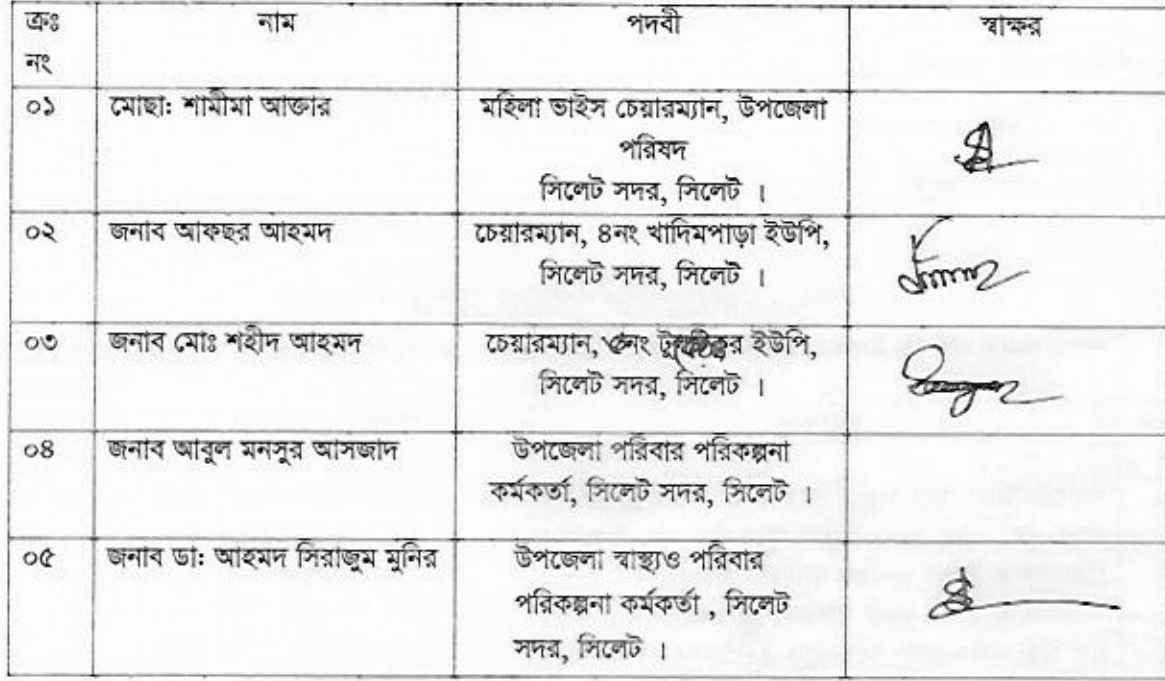 ক্রঃ নাম পদবী স্বাক্ষর
নং
০১ মোছা: শামীমা আক্তার মহিলা ভাইস চেয়ারম্যান, উপজেলা
পরিষদ
সিলেট সদর, সিলেট ।
০২ জনাব আফছর আহমদ চেয়ারম্যান, ৪নং খাদিমপাড়া ইউপি,
সিলেট সদর, সিলেট ।
০৩ জনাব মোঃ শহীদ আহমদ চেয়ারম্যান, ৫নং ইউপি,
সিলেট সদর, সিলেট ।
০৪ জনাব আবুল মনসুর আসজাদ উপজেলা পরিবার পরিকল্পনা
কর্মকর্তা, সিলেট সদর, সিলেট ।
০৫ জনাব ডা: আহমদ সিরাজুম মুনির উপজেলা স্বাস্থ্যও পরিবার
পরিকল্পনা কর্মকর্তা , সিলেট
সদর, সিলেট ।